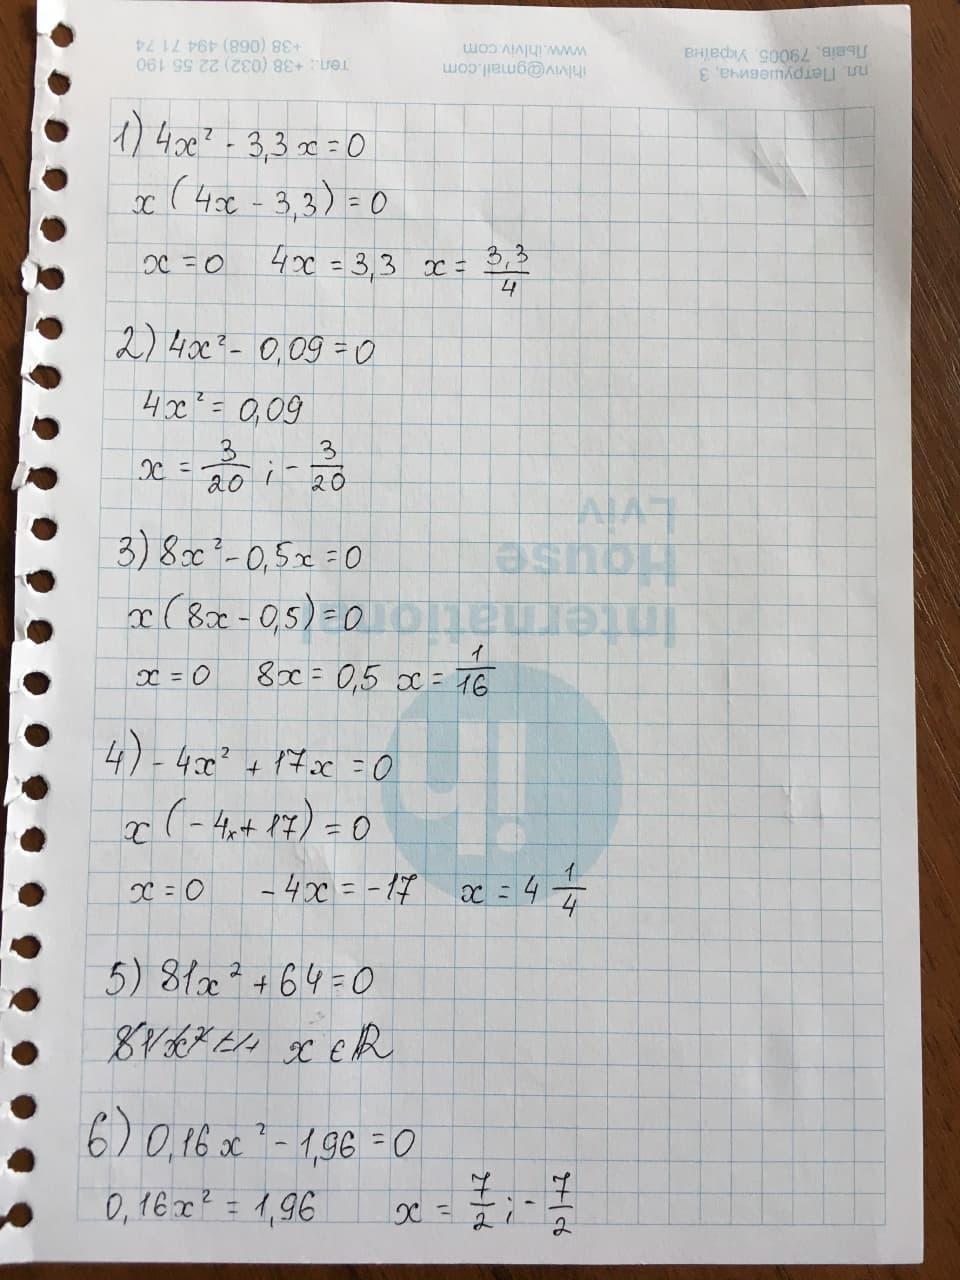 пл. Петрушевича, 3
Львів, 79005 Україна
ihlviv@gmail.com
www.ihlviv.com
тел.: +38 (032) 22 55 190
+38 (068) 494 71 74
1) 4x² - 3,3x = 0
x(4x - 3,3) = 0
x = 0 4x = 3,3 x = 3,3/4
2) 4x² - 0,09 = 0
4x² = 0,09
x = 3/20 ; - 3/20
3) 8x² - 0,5x = 0
x(8x - 0,5) = 0
x = 0 8x = 0,5 x = 1/16
4) - 4x² + 17x = 0
x(-4x + 17) = 0
x = 0 - 4x = -17 x = 4 1/4
5) 81x² + 64 = 0
x ∈ ℝ
6) 0,16x² - 1,96 = 0
0,16x² = 1,96 x = 7/2 ; - 7/2
International
House
Lviv
ih